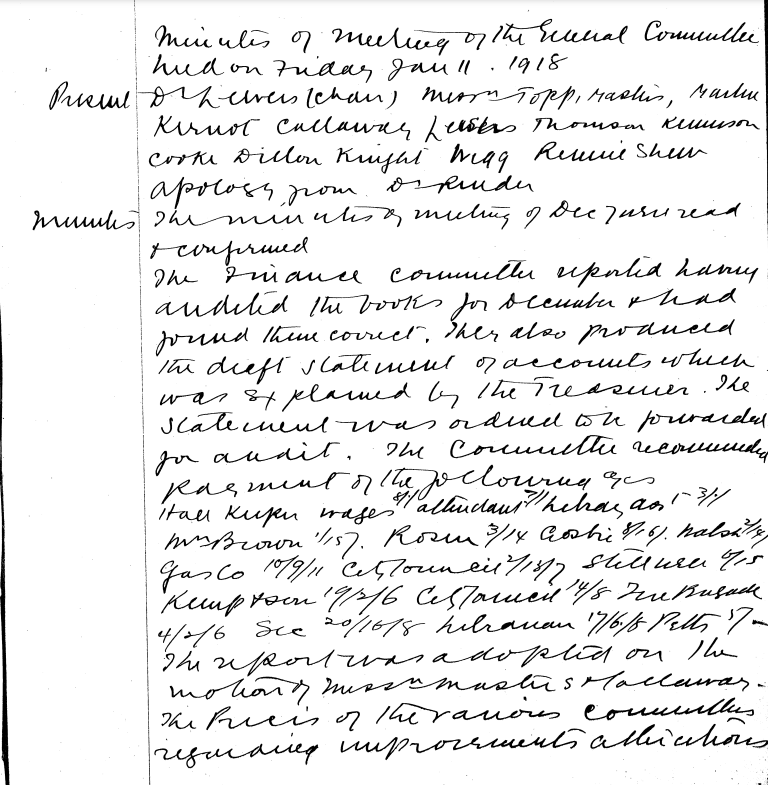 Minutes of meeting of the General Committee
held on Friday Jan 11. 1918
Present Dr Leivers (chair) Messrs Topp, Masters, Martin
Kernot Callaway Thomson Kennison
Cooke Dillon Knight Wegg Rennie Shew
Apology from Dr Pinder
Minutes The minutes of meeting of Dec 7 were read
& confirmed
The Finance committee reported having
audited the books for December & had
found them correct. They also produced
the draft statement of accounts which
was explained by the Treasurer. The
statement was ordered to be forwarded
for audit. The Committee recommended
payment of the following a/cs
Hall Keeper wages 8/1/ attendant library asst 3/1/
Mrs Brown 1/15/. Rosin 3/14 8/16/. Walsh
Gas Co 10/9/11 City Council 2/18/7 Stillwell 0/15
Kemp & son 19/2/6 City Council 14/8 Fire Brigade
4/2/6 Sec 20/16/8 Librarian 17/6/8 Petts 5/-
The report was adopted on the
motion of Messrs Masters & Callaway.
The Precis of the various committees
regarding improvements alterations